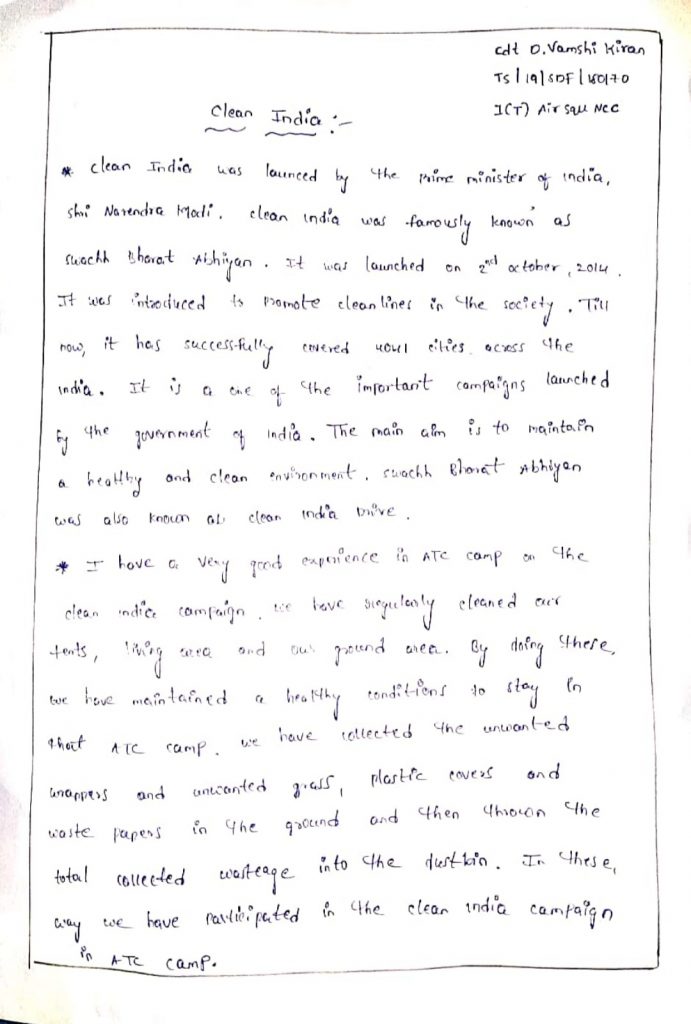 cdt D. Vamshi Kiran
TS/19/SDF/180170
1(T) Air squ NCC
Clean India :-
* clean India was launced by the prime minister of india,
shri Narendra Modi. clean india was famously known as
swachh Bharat Abhiyan. It was launched on 2nd october, 2014.
It was introduced to promote cleanlines in the society. Till
now, it has successfully covered 4041 cities across the
india. It is a one of the important campaigns launched
by the government of india. The main aim is to maintain
a healthy and clean environment. swachh Bharat Abhiyan
was also known as clean india Drive.
* I have a very good experience in ATC camp on the
clean india campaign. we have regularly cleaned our
tents, living area and our ground area. By doing these,
we have maintained a healthy conditions to stay in
that ATC camp. we have collected the unwanted
wrappers and unwanted grass, plastic covers and
waste papers in the ground and then thrown the
total collected wasteage into the dustbin. In these,
way we have participated in the clean india campaign
in ATC camp.